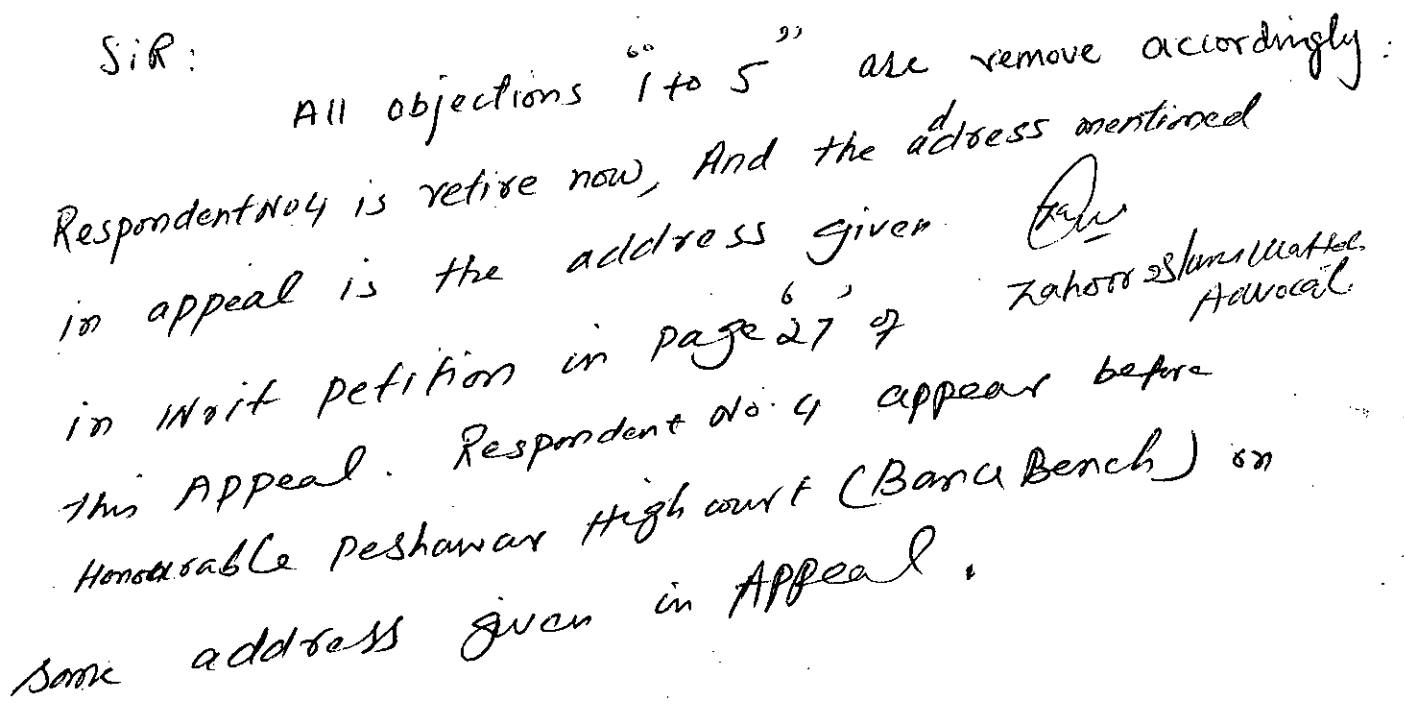 SiR:
All objections "1 to 5" are remove accordingly:
Respondent No 4 is retire now, And the address mentioned
in appeal is the address given
in Writ petition in page '27' of
this Appeal. Respondent No. 4 appear before
Honourable Peshawar High court (Banu Bench) on
same address given in Appeal.
Zahoor Islam Khattak
Advocat